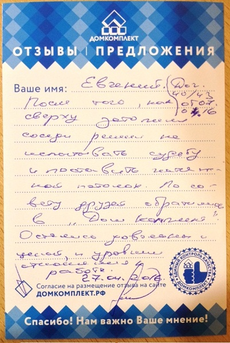 ДОМКОМПЛЕКТ
ОТЗЫВЫ | ПРЕДЛОЖЕНИЯ
Ваше имя: Евгений. Дог.
После того, как
сверху затопили
соседи решили не
испытывать судьбу
и поставить натяж
ной потолок. По со
вету друзей обратились
в "Дом комплект"
Остались довольны и
ценой, и уровнем
работы.
27.04.2016
Согласие на размещение отзыва на сайте
ДОМКОМПЛЕКТ.РФ
Спасибо! Нам важно Ваше мнение!